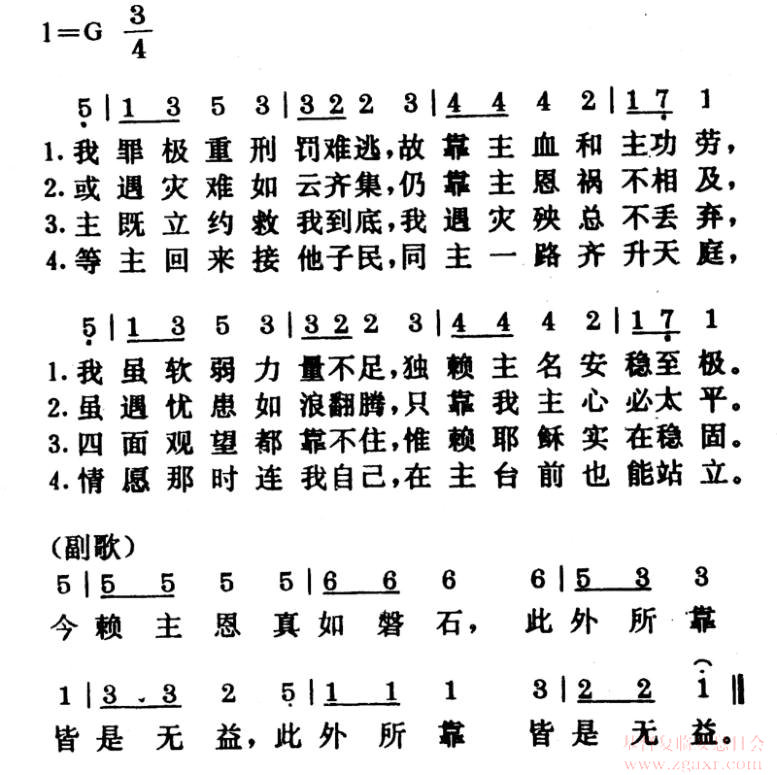 1=G 3/4
5̣ | 1 3 5 3 | 3 2 2 3 | 4 4 4 2 | 1 7̣ 1
1.我罪极重刑罚难逃,故靠主血和主功劳,
2.或遇灾难如云齐集,仍靠主恩祸不相及,
3.主既立约救我到底,我遇灾殃总不丢弃,
4.等主回来接他子民,同主一路齐升天庭,
5̣ | 1 3 5 3 | 3 2 2 3 | 4 4 4 2 | 1 7̣ 1
1.我虽软弱力量不足,独赖主名安稳至极。
2.虽遇忧患如浪翻腾,只靠我主心必太平。
3.四面观望都靠不住,惟赖耶稣实在稳固。
4.情愿那时连我自己,在主台前也能站立。
(副歌)
5 | 5 5 5 5 | 6 6 6 6 | 5 3 3
今赖主恩真如磐石,此外所靠
1 | 3 . 3 2 5̣ | 1 1 1 3 | 2 2 1 ‖
皆是无益,此外所靠皆是无益。
www.zgaxr.com